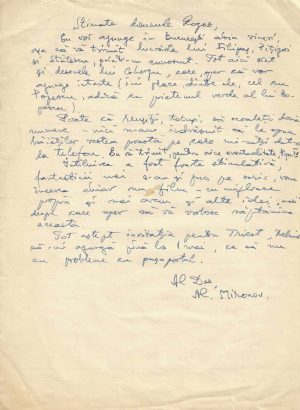 Stimate domnule Rogoz,
Eu voi ajunge în București abia vineri,
așa că vă trimit lucrările lui Filipaș, Pițigoi
și Stătescu, printr-un cunoscut. Tot aici sînt
și desenele lui Coberja, care sper că vor
ajunge intacte (îmi place, dintre ele, cel cu
"ogorul", adică cu prietenul verde al lui
pescu).
Poate că reușiți, totuși, să
numere - nici n-am îndrăznit să le spun
băieților vestea proastă pe care mi-ați dat-o
la telefon. Eu să trimit, pentru orice eventualitate,
Întîlnirea a fost foarte stimulativă
fantaștii mei s-au și pus pe scris, vom
încerca chiar un film - cu mijloace
proprii și mai avem și alte idei,
despre care sper să vă vorbesc săptămîna
aceasta.
Tot aștept invitația pentru Triest, trebuie
să-mi ajungă pînă la 1 mai, ca să nu
am probleme cu pașaportul.
Al Dvs,
Al. Mironov